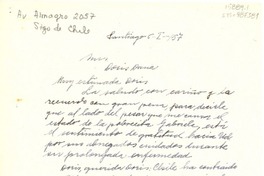 Av. Almagro 2057
Stgo de Chile
Santiago 5-I-57
Doris Dana
Muy estimada Doris
La saludo con cariño y la
recuerdo con gran pena, para decirle
que al lado del pesar que me causa el
estado de la pobrecita Gabriela, está el
sentimiento de gratitud hacia Ud.
por sus abnegados cuidados durante
su prolongada enfermedad
Doris, querida Doris, Chile ha